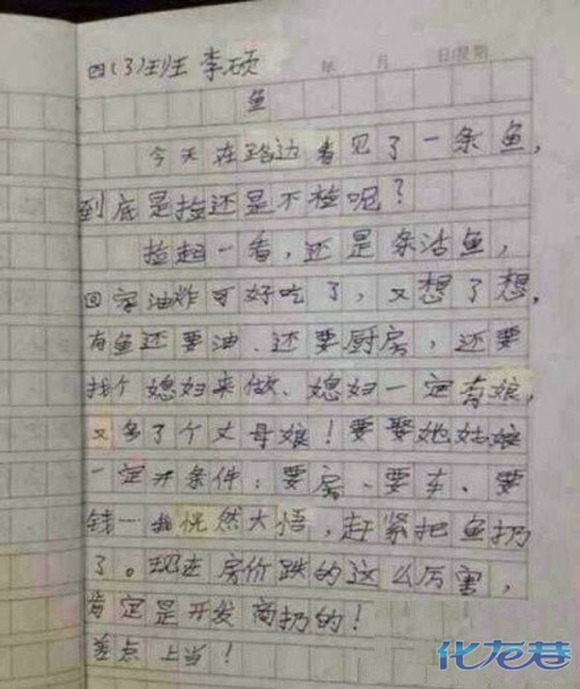 四(3)班 李硕
年 月 日/星期
鱼
今天在路边看见了一条鱼,
到底是捡还是不捡呢?
捡起一看,还是条活鱼,
回家油炸可好吃了,又想了想,
有鱼还要油、还要厨房,还要
找个媳妇来做、媳妇一定有娘,
又多了个丈母娘!要娶她姑娘
一定开条件:要房、要车、要
钱…我恍然大悟,赶紧把鱼扔
了。现在房价跌的这么厉害,
肯定是开发商扔的!
差点上当!
化龙巷